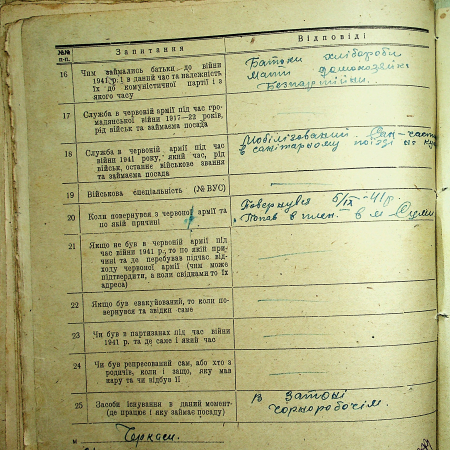 №№ п-п. Запитання Відповіді
16 Чим займались батьки до війни
1941 р. і в даний час та належність
їх до комуністичної партії і з
якого часу
Батьки хлібороби
Мати домохозяйка
Безпартійни.
17 Служба в червоній армії під час гро-
мадянської війни 1917—22 років,
рід військ та займаєма посада
18 Служба в червоній армії під час
війни 1941 року, який час, рід
військ, останнє військове звання
та займаєма посада
Мобілізований. Сан-части
в санітарному поїзді
19 Військова спеціальність (№ ВУС)
20 Коли повернувся з червоної армії та
по якій причині
Повернувся 5/IX-41 р.
Попав в плен. в м Суми
21 Якщо не був в червоній армії під
час війни 1941 р., то по якій при-
чині та де перебував підчас від-
ходу червоної армії (чим може
підтвердити, а коли свідками то їх
адреса)
22 Якщо був евакуйований, то коли по-
вернувся та звідки саме
23 Чи був в партизанах під час війни
1941 р. та де саме і який час
24 Чи був репресований сам, або хто з
родичів, коли і защо, яку мав
кару та чи відбув її
25 Засоби існування в даний момент
(де працює і яку займає посаду)
в Затоні
чорноробочім.
м Черкаси.